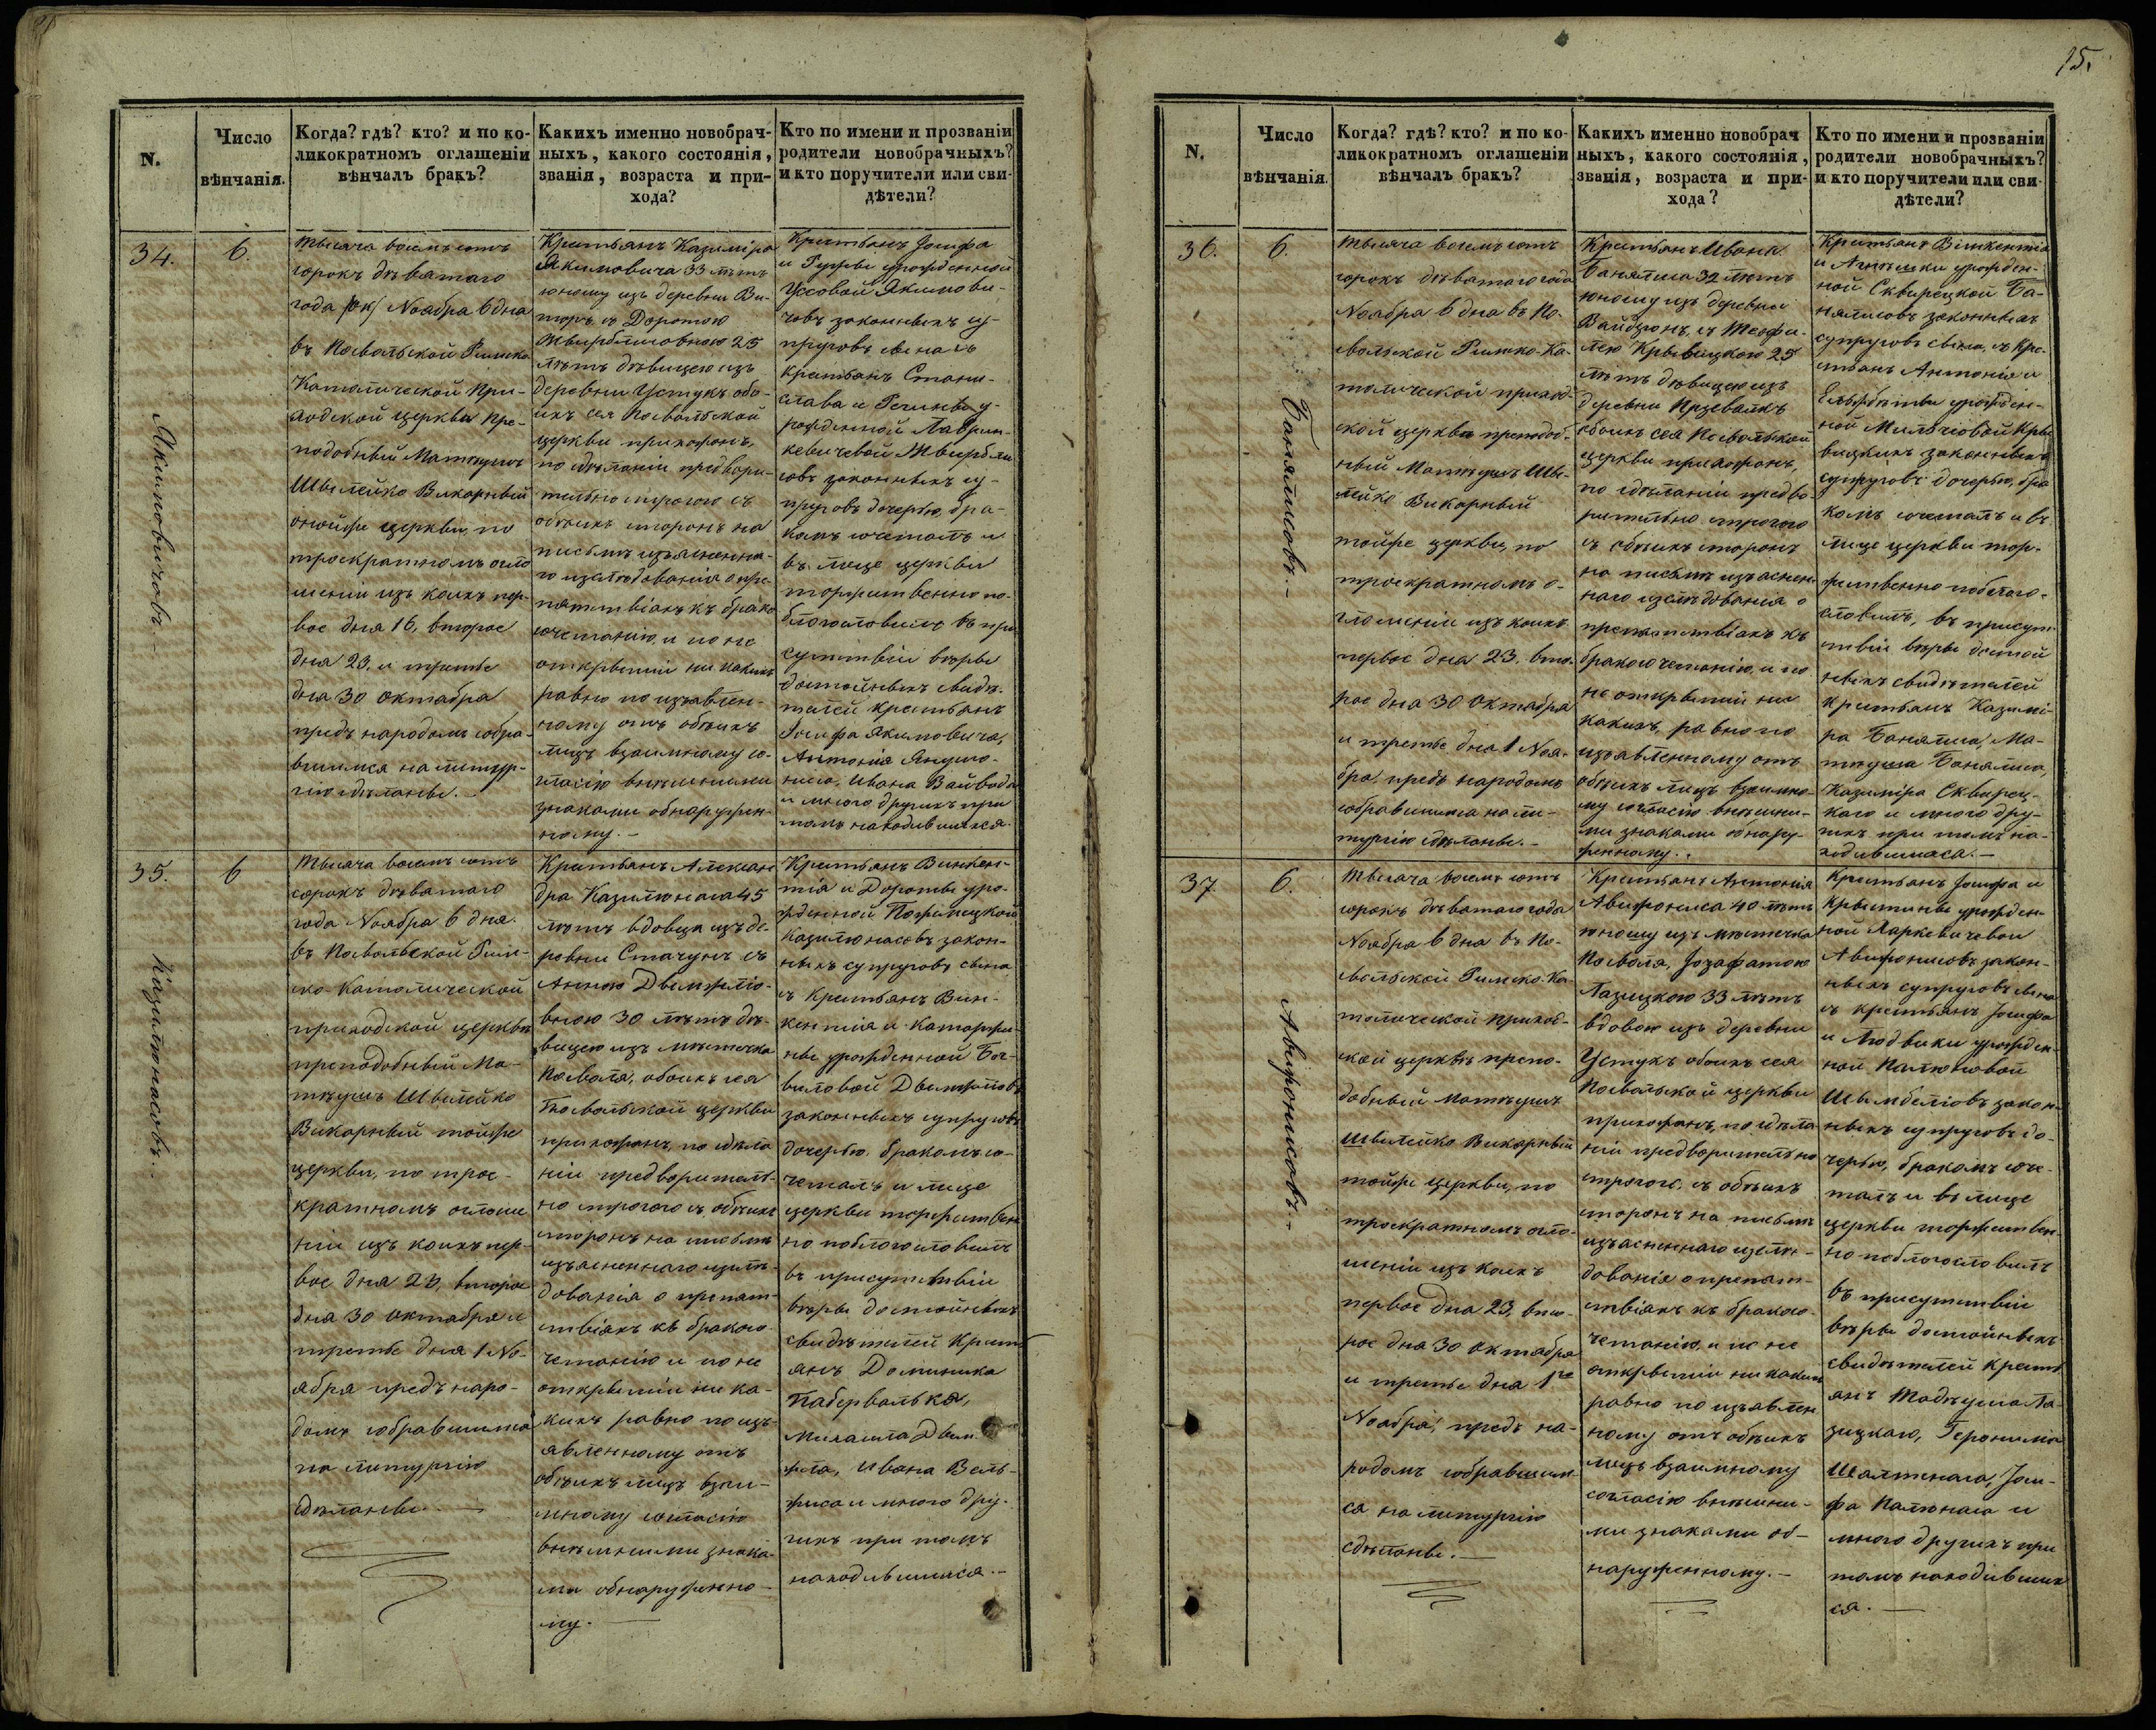 15.
N.
Число
вѣнчанія.
Когда? гдѣ? кто? и по ко-
ликократномъ оглашеніи
вѣнчалъ бракъ?
Какихъ именно новобрач-
ныхъ, какого состоянія,
званія, возраста и при-
хода?
Кто по имени и прозваніи
родители новобрачныхъ?
и кто поручители или сви-
дѣтели?
34.
6.
Якимовичовъ.-
Тысяча восемъ сотъ
сорокъ дѣватаго
года Ноабра 6 дна
въ Посвольской Римско
Католической При-
ходской церкви Пре-
подобный Матѣушъ
Швилейко Викарный
онойже церкви, по
троекратномъ огла
шеніи изъ коихъ пер-
вое дня 16, второе
дня 23, и третье
дна 30 октабра
предъ народомъ собра-
вшимся на литур-
гію сдѣланы.-
Крестьянъ Казиміра
Якимовича 33 лѣтъ
юношу изъ деревни
съ Доротою
25
лѣтъ дѣвицею изъ
деревни Устукъ обо-
ихъ сея Посвольской
церкви прихожанъ,
по сдѣланіи предвари-
тельно строгого съ
обѣихъ сторонъ на
письмѣ изъясненна-
го изслѣдованія о пре-
пятствіахъ къ брако
сочетанію, и по не
открытіи ни какихъ
равно по изъавлен-
ному отъ обѣихъ
лицъ взаимному со-
гласію внѣшними
знаками обнаружен-
ному.-
Крестьянъ Іосифа
и урожденной
Якимови-
човъ законныхъ су-
пруговъ сына съ
крестьянъ Стани-
слава и Регины у-
рожденной Лаврин-
кевичевой
законныхъ су-
пруговъ дочерью, бра-
комъ сочеталъ и
въ лице церкви
торжественно по-
благословилъ въ при
сутствіи вѣры
достойныхъ свидѣ-
телей крестьянъ
Іосифа Якимовича,
Антонія
Ивана
и много другихъ при
томъ находившихся.
35.
6
Казилюнасовъ.-
Тысяча восемъ сотъ
сорокъ дѣватаго
года Ноабра 6 дня
въ Посвольской Рим-
ско-Католической
приходской церкви
преподобный Ма-
тѣушъ Швилейко
Викарный тойже
церкви, по трое-
кратномъ оглаше
ніи изъ коихъ пер-
вое дня 23, второе
дня 30 октабря и
третье дня 1 Но-
ября предъ наро-
домъ собравшимся
на литургію
сдѣланы.-
Крестьянъ Алексан
дра Казилюнаса 45
лѣтъ вдовца изъ де-
ревни Стачунъ съ
Анною
вною 30 лѣтъ дѣ-
вицею изъ мѣстечка
Посволя, обоихъ сея
Посвольской церкви
прихожанъ, по сдѣла
ніи предваритель-
но строгого съ обѣихъ
сторонъ на письмѣ
изъасненнаго изслѣ-
дованія о препят-
ствіахъ къ бракосо-
четанію и по не
открытіи ни ка-
кихъ равно по изъ-
явленному отъ
обѣихъ лицъ взаи-
мному согласію
внѣшними знака-
ми обнаруженно-
му.-
Крестьянъ Винкен-
тія и Дороты уро-
жденной
Казилюнасовъ закон-
ныхъ супруговъ сына
съ Крестьянъ Вин-
кентія и Катаржи-
ны урожденной
законныхъ супруговъ
дочерью, бракомъ со-
четалъ и лице
церкви торжествен
но поблагословилъ
въ присутствіи
вѣры достойныхъ
свидѣтелей Кресть
янъ Доминика
Михаила
Ивана
и много дру-
гихъ при томъ
находившихся.-
N.
Число
вѣнчанія.
Когда? гдѣ? кто? и по ко-
ликократномъ оглашеніи
вѣнчалъ бракъ?
Какихъ именно новобрач
ныхъ, какого состоянія,
званія, возраста и при-
хода?
Кто по имени и прозваніи
родители новобрачныхъ?
и кто поручители или сви-
дѣтели?
36.
6.
Банялисовъ.-
Тысяча восемъ сотъ
сорокъ дѣватаго года
Ноабра 6 дна въ По-
свольской Римско-Ка-
толической приход-
ской церкви преподоб-
ный Матѣушъ Шви-
лейко Викарный
тойже церкви, по
троекратномъ о-
глашеніи изъ коихъ
первое дна 23, вто-
рое дна 30 Октабра
и третье дна 1 Ноа-
бра, предъ народомъ
собравшимся на ли-
тургію сдѣланы.-
Крестьянъ Ивана
Банялиса 32 лѣтъ
юношу изъ деревни
съ Теофи-
лею Крывицкою 25
лѣтъ дѣвицею изъ
деревни
обоихъ сея Посвольской
церкви прихожанъ,
по сдѣланіи предва-
рительно строгого
съ обѣихъ сторонъ
на письмѣ изъаснен-
наго изслѣдованія о
препятствіахъ къ
бракосочетанію, и по
не открытіи ни
какихъ, равно по
изъавленному отъ
обѣихъ лицъ взаимно-
му согласію внѣшни-
ми знаками обнару-
женному.-
Крестьянъ Винкентія
и урожден-
ной Сквирецкой Ба-
нялисовъ законныхъ
супруговъ сына, съ Кре-
стьянъ Антонія и
Ельжбеты урожден-
ной Кры
вицкихъ законныхъ
супруговъ дочерью, бра
комъ сочеталъ и въ
лице церкви тор-
жественно поблаго-
словилъ, въ присут-
ствіи вѣры достой
ныхъ свидѣтелей
крестьянъ Казимі-
ра Банялиса, Ма-
тѣуша Банялиса,
Казиміра Сквирец-
каго и много дру-
гихъ при томъ на-
ходившихся.-
37
6.
Авижонисовъ.-
Тысача восемъ сотъ
сорокъ дѣватаго года
Ноабра 6 дна въ По-
свольской Римско-Ка-
толической приход-
ской церкви препо-
добный Матѣушъ
Швилейко Викарный
тойже церкви, по
троекратномъ огла-
шеніи изъ коихъ
первое дна 23, вто-
рое дна 30 октабра
и третье дна 1го
Ноабра, предъ на-
родомъ собравшим-
ся на литургію
сдѣланы.-
Крестьянъ Антонія
Авижониса 40 лѣтъ
юношу изъ мѣстечка
Посволя, Іозафатою
Лазицкою 33 лѣтъ
вдовою изъ деревни
Устукъ обоихъ сея
Посвольской церкви
прихожанъ, по сдѣла
ніи предварительно
строгого, съ обѣихъ
сторонъ на письмѣ
изъасненнаго изслѣ-
дованія о препят-
ствіахъ къ бракосо-
четанію, и по не
открытіи никакихъ
равно по изъавлен
ному отъ обѣихъ
лицъ взаимному
согласію внѣшни-
ми знаками об-
наруженному.-
Крестьянъ Іосифа и
Крыстины урожден-
ной Яркевичевой
Авижонисовъ закон-
ныхъ супруговъ сына
съ крестьянъ Іосифа
и Людвики урожден-
ной
закон-
ныхъ супруговъ до-
черью, бракомъ соче-
талъ и въ лице
церкви торжествен-
но поблагословилъ
въ присутствіи
вѣры достойныхъ
свидѣтелей Кресть
янъ Тадѣуша Ла-
зицкаго, Геронима
Іоси-
фа и
много другихъ при
томъ находивших
ся.-